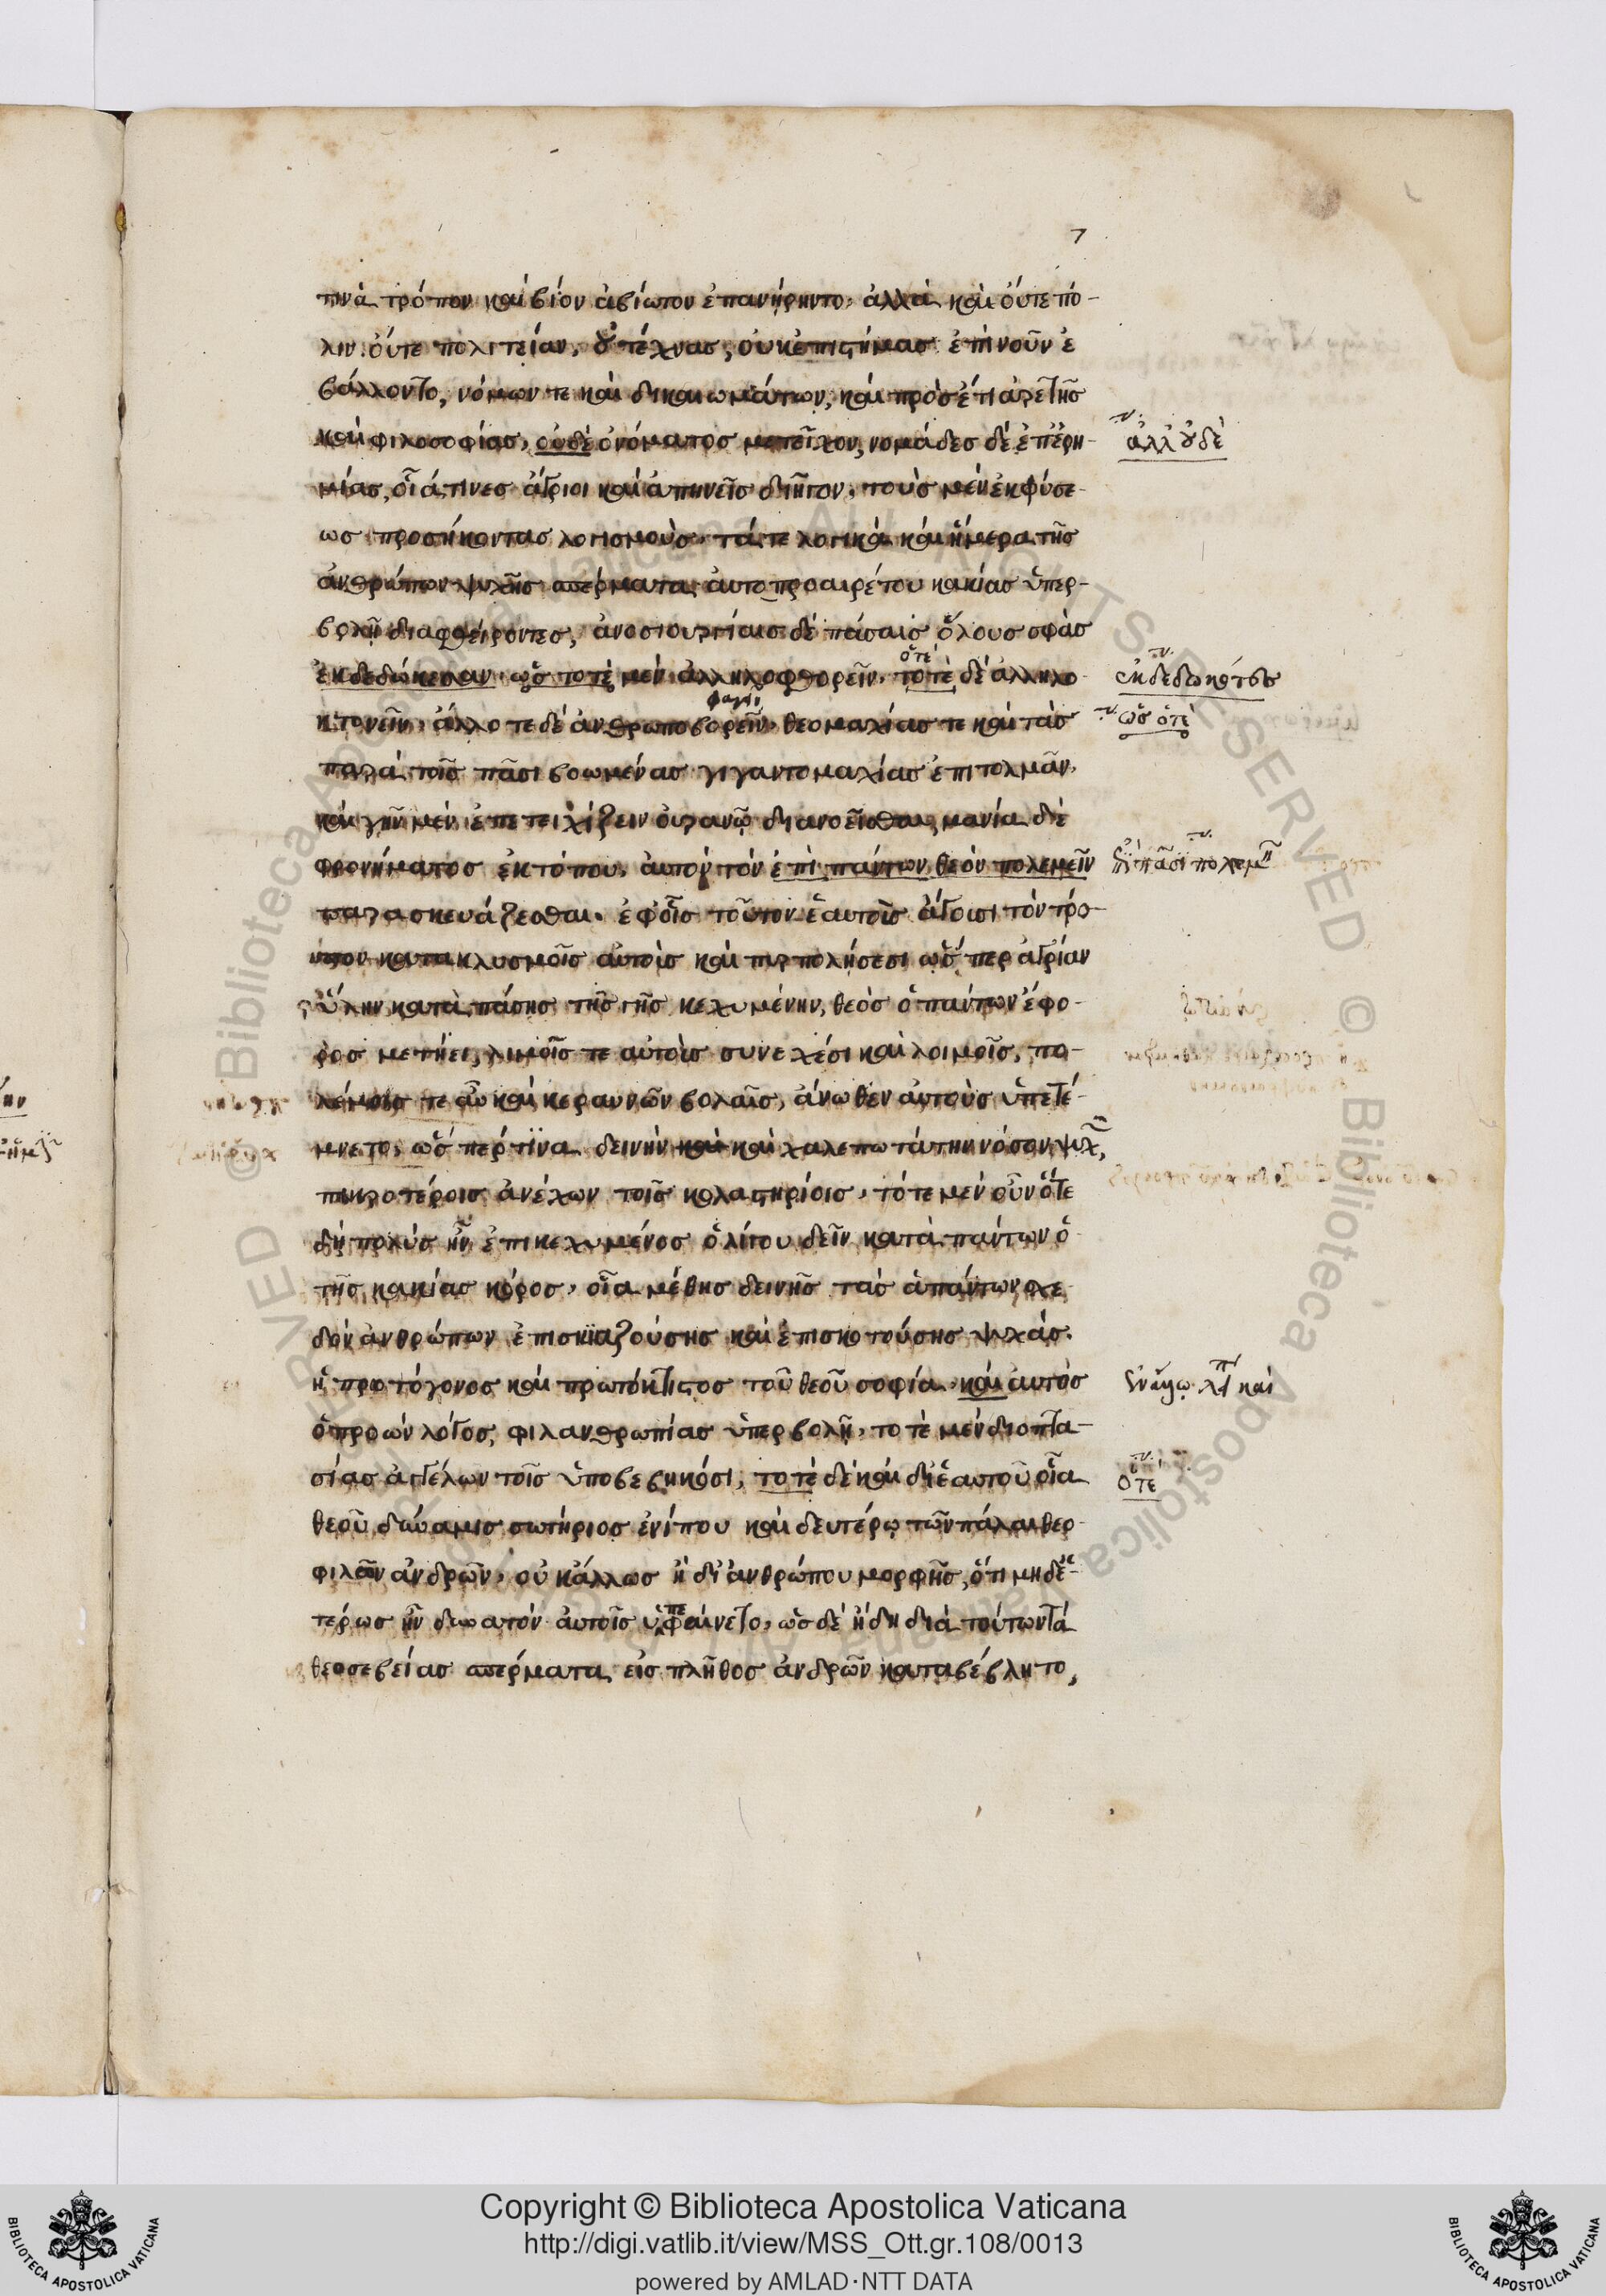 7
τινὰ τρόπον καὶ βίον ἀβίωτον ἐπανήρηντο, ἀλλὰ καὶ οὔτε πό-
λιν οὔτε πολιτείαν, οὐ τέχνας, οὐκ ἐπιστήμας ἐπὶ νοῦν ἐ
βάλλοντο, νόμων τε καὶ δικαιωμάτων, καὶ πρὸς ἔτι ἀρετῆς
καὶ φιλοσοφίας, οὐδὲ ὀνόματος μετεῖχον, νομάδες δὲ ἐπ' ἐρη-
ἀλλ' οὐδὲ
μίας, οἷά τινες ἄγριοι καὶ ἀπηνεῖς διῆγον, τοὺς μὲν ἐκ φύσε-
ως προσήκοντας λογισμοὺς, τά τε λογικὰ καὶ ἥμερα τῆς
ἀνθρώπων ψυχῆς σπέρματα, αὐτοπροαιρέτου κακίας ὑπερ-
βολῇ διαφθείροντες, ἀνοσιουργίαις δὲ πάσαις ὅλους σφᾶς
ὁτὲ
ἐκδεδώκεσαν, ὡς ποτὲ μὲν ἀλληλοφθορεῖν, τοτὲ δὲ ἀλληλο
ἐκδεδωκότες
φαγεῖν
κτονεῖν, ἄλλοτε δὲ ἀνθρωποβορεῖν, θεομαχίας τε καὶ τὰς
ὡς ὁτὲ
παρὰ τοῖς πᾶσι βοωμένας γιγαντομαχίας ἐπιτολμᾶν,
καὶ γῆν μὲν ἐπετειχίζειν οὐρανῷ διανοεῖσθαι, μανία δὲ
φρονήματος ἐκτόπου, αὐτὸν τὸν ἐπὶ πάντων θεὸν πολεμεῖν
ἐπὶ πᾶσι πολεμεῖν
παρασκευάζεσθαι. ἐφ' οἷς τοῦτον ἑαυτοῖς ἄγουσι τὸν τρό-
πον κατακλυσμοῖς αὐτοὺς καὶ πυρπολήσεσι ὥσπερ ἀγρίαν
ὕλην κατὰ πάσης τῆς γῆς κεχυμένην, θεὸς ὁ πάντων ἔφο-
ρος μετῄει, λιμοῖς τε αὐτοὺς συνεχέσι καὶ λοιμοῖς, πο-
λέμοις τε αὖ καὶ κεραυνῶν βολαῖς, ἄνωθεν αὐτοὺς ὑπετέ-
μνετο, ὥσπερ τινα δεινὴν καὶ καὶ χαλεπωτάτην νόσον ψυχῶν,
πικροτέροις ἀνέχων τοῖς κολαστηρίοις, τότε μὲν οὖν ὅτε
δὴ πολὺς ἦν ἐπικεχυμένος ὀλίγου δεῖν κατὰ πάντων ὁ
τῆς κακίας κόρος, οἷα μέθης δεινῆς τὰς ἁπάντων σχε
δὸν ἀνθρώπων ἐπισκιαζούσης καὶ ἐπισκοτούσης ψυχάς.
ἡ πρωτόγονος καὶ πρωτόκτιστος τοῦ θεοῦ σοφία, καὶ αὐτὸς
ὁ προὼν λόγος, φιλανθρωπίας ὑπερβολῇ, τοτὲ μὲν δι' ὀπτα-
σίας ἀγγέλων τοῖς ὑποβεβηκόσι, τοτὲ δὲ καὶ δι' ἑαυτοῦ οἷα
ὁτε
θεοῦ δύναμις σωτήριος ἑνί που καὶ δευτέρῳ τῶν πάλαι θεο
φιλῶν ἀνδρῶν, οὐκ ἄλλως ἢ δι' ἀνθρώπου μορφῆς, ὅτι μηδ' ἑ-
τέρως ἦν δυνατὸν αὐτοῖς ὑπεφαίνετο, ὡς δὲ ἤδη διὰ τούτων τὰ
θεοσεβείας σπέρματα εἰς πλῆθος ἀνδρῶν καταβέβλητο,
© Biblioteca Apostolica Vaticana ALL RIGHTS RESERVED
Copyright © Biblioteca Apostolica Vaticana
http://digi.vatlib.it/view/MSS_Ott.gr.108/0013
powered by AMLAD·NTT DATA
BIBLIOTECA APOSTOLICA VATICANA
BIBLIOTECA APOSTOLICA VATICANA